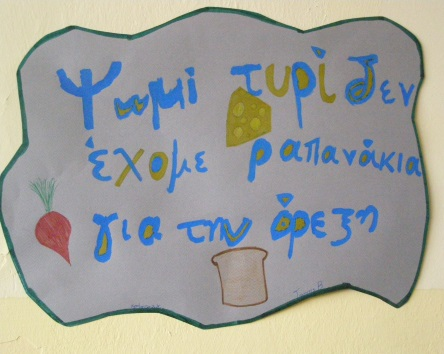 Ψωμί τυρί δεν
έχομε ραπανάκια
για την όρεξη